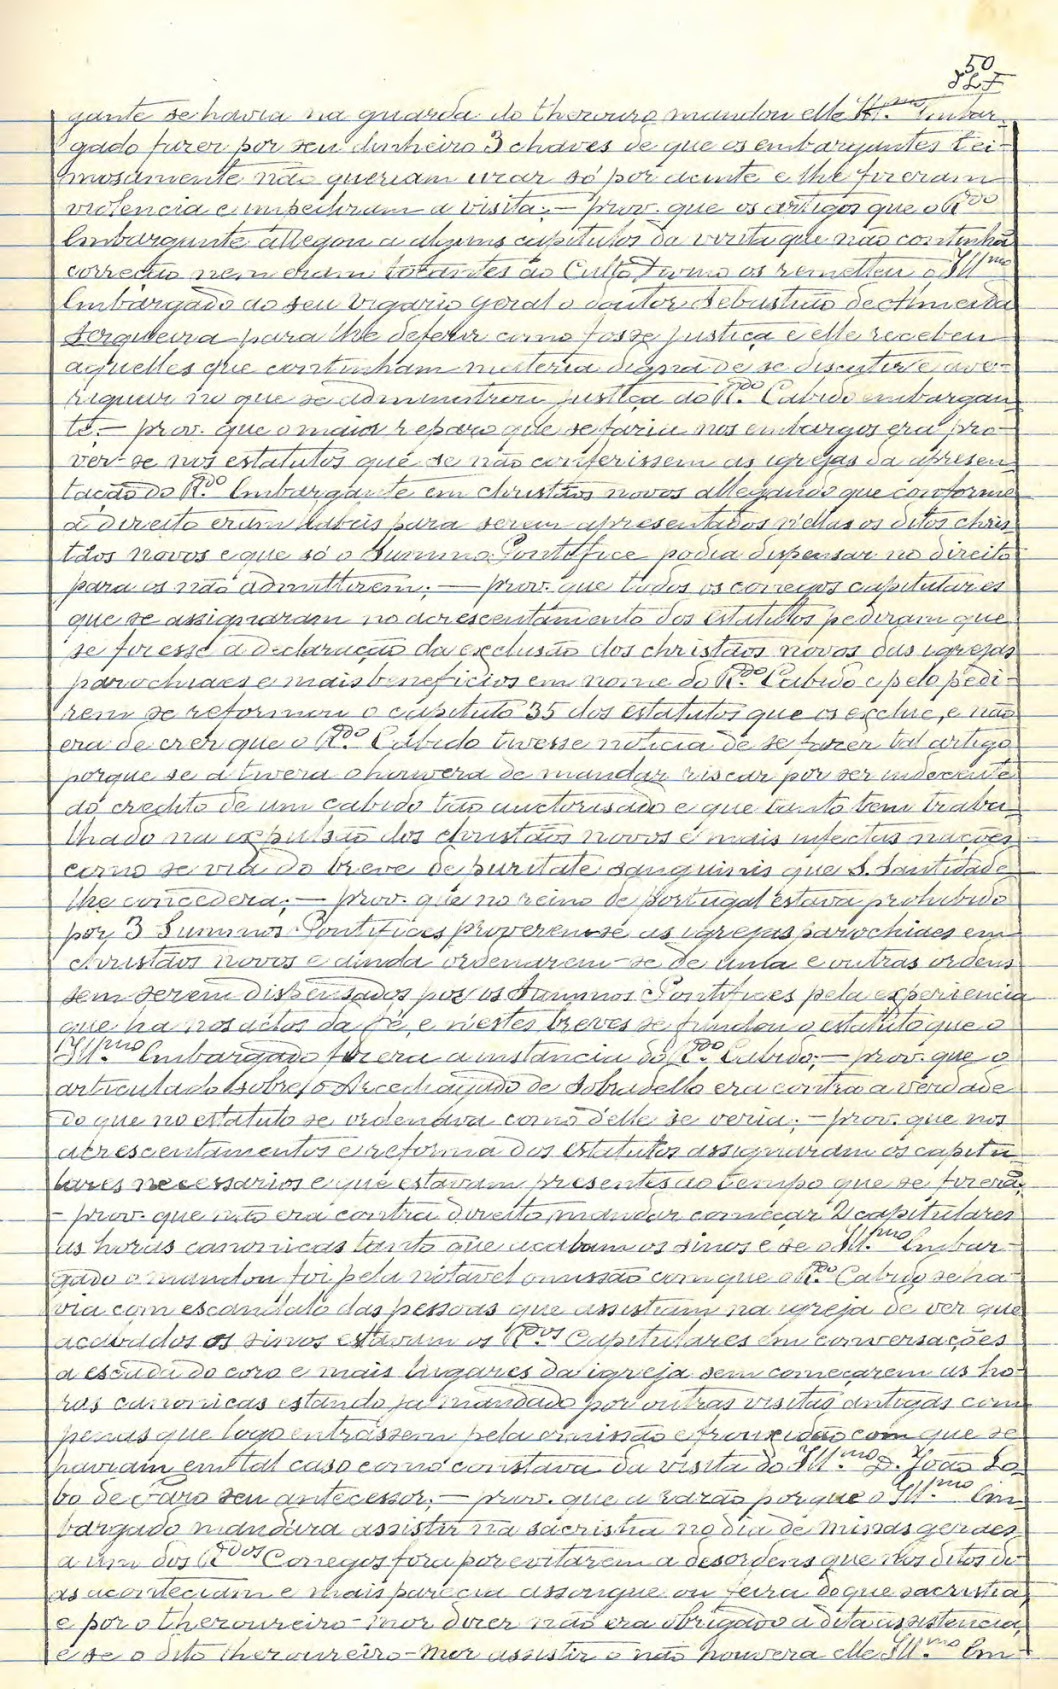 50
JLF
gante se havia na guarda do thezouro mandou elle Ill.mo Embar-
gado fazer por seu dinheiro 3 chaves de que os embargantes tei-
mosamente não queriam uzar só por acinte e lhe fizeram
violencia e impediram a visita; — prov. que os artigos que o R.do
Embargante allegou a alguns capitulos da vizita que não continhã
correcão nem eram tocantes ao Culto Divino os remetteu o Ill.mo
Embargado ao seu vigario geral o doutor Sebastião de Almeida
Serqueira para lhe deferir como fosse justiça e elle recebeu
aquelles que continham materia digna de se discutir e ave-
riguar no que se administrou justiça ao R.do Cabido embargan-
te; — prov. que o maior reparo que se fazia nos embargos era pro-
ver-se nos estatutos que se não conferissem as igrejas da apresen-
tação do R.do Embargante em christãos novos allegando que conforme
a direito eram habeis para serem apresentados n'ellas os ditos chris
tãos novos e que só o Summo Pontifice podia dispensar no direito
para os não admittirem; — prov. que todos os conegos capitulares
que se assignaram no acrescentamento dos Estatutos pediram que
se fizesse a declaração da exclusão dos christãos novos das igrejas
parochiaes e mais beneficios em nome do R.do Cabido e pelo pedi-
rem se reformou o capitulo 35 dos estatutos que os exclue, e não
era de crer que o R.do Cabido tivesse noticia de se fazer tal artigo
porque se a tivera o houvera de mandar riscar por ser indecente
ao credito de um cabido tão auctorisado e que tanto tem traba-
lhado na expulsão dos christãos novos e mais infectas nações
como se via do breve de puritate sanguinis que S. Santidade
lhe concedera; — prov. que no reino de Portugal estava prohibido
por 3 Summos Pontifices proverem-se as igrejas parochiaes em
christãos novos e ainda ordenarem-se de uma e outras ordens
sem serem dispensados por os Summos Pontifices pela experiencia
que ha nos actos da fé, e n'estes breves se fundou o estatuto que o
Ill.mo Embargado fizera a instancia do R.do Cabido; — prov. que o
articulado sobre o Arcediagado de Sobradello era contra a verdade
do que no estatuto se ordenava como d'elle se veria; — prov. que nos
acrescentamentos e reforma dos estatutos assignaram os capitu-
lares necessarios e que estavam presentes ao tempo que se fizerã;
- prov. que não era contra direito mandar começar 2 capitulares
as horas canonicas tanto que acabam os sinos e se o Ill.mo Embar-
gado o mandou foi pela notavel omissão com que o R.do Cabido se ha-
via com escandalo das pessoas que assistiam na igreja de ver que
acabados os sinos estavam os R.dos Capitulares em conversações
a escada do coro e mais lugares da igreja sem começarem as ho-
ras canonicas estando já mandado por outras visitas antigas com
penas que logo entrassem pela omissão e frouxidão com que se
haviam em tal caso como constava da visita do Ill.mo D. João Lo-
bo de Faro seu antecessor; — prov. que a razão por que o Ill.mo Em-
bargado mandára assistir na sacristia no dia de missas geraes
a um dos R.dos Conegos fora por evitarem a desordens que nos ditos di-
as aconteciam e mais parecia assougue ou feira do que sacristia,
e por o thezoureiro-mor dizer não era obrigado a dita assistencia,
e se o dito thezoureiro-mor assistir o não houvera elle Ill.mo Em-